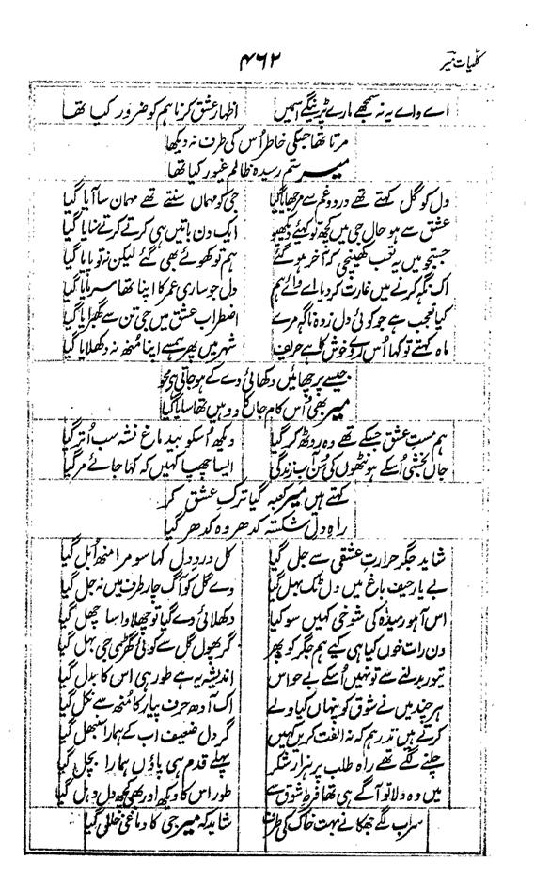 کلیات میر
۴۶۲
اے واے یہ نہ سمجھے مارے پڑینگے اسمیں اظہار عشق کرنا ہم کو ضرور کیا تھا
مرتا تھا جسکی خاطر اُس کی طرف نہ دیکھا
میر ستم رسیدہ ظالم غیور کیا تھا
دل کو گل کہتے تھے درد و غم سے مرجھایا گیا جی کو مہماں سنتے تھے مہمان سا آیا گیا
عشق سے ہو حال جی میں کچھ تو کہیئے اک دن باتیں ہی کرتے کرتے سنایا گیا
جستجو میں یہ تعب کھینچی کہ آخر ہو گئے ہم تو کھوئے بھی گئے لیکن نہ تو پایا گیا
اک نگہ کرنے میں غارت کر دیا اے وائے ہم دل جو ساری عمر کا اپنا تھا سرمایا گیا
کیا تعجب ہے جو کوئی دل زدہ ناگہ مرے اضطراب عشق میں جی تن سے گھبرایا گیا
ماہ کہتے تو کہا اُس رو خوش کا ہے حریف شہر میں پھر ہمسے اپنا منھ نہ دکھلایا گیا
جیسے پرچھائیں دکھائی دے کے ہو جاتی ہے محو
میر بھی اُس کام جاں کا ووہیں تھا سایا گیا
ہم مست عشق جسکے تھے وہ روٹھ کر گیا دیکھ اُسکو بیدماغ نشہ سب اُتر گیا
جاں بخشی اُسکے ہونٹھوں کی سُن آب زندگی ایسا چھپا کہیں کہ کہا جائے مر گیا
کہتے ہیں میر کعبہ گیا ترکِ عشق کر
راہِ دلِ شکستہ کدھر وہ کدھر گیا
شاید جگر حرارتِ عشقی سے جل گیا کل دردِ دل کہا سو مرا منھ اُبل گیا
بے یار حیف باغ میں دل ٹک بہل گیا دے گل کو آگ چار طرف میں نہ جل گیا
اس آہوِ رمیدہ کی شوخی کہیں سو کیا دکھلائی دے گیا تو چھلاوا سا چھل گیا
دن رات خوں کیا ہی کیے ہم جگر کو پھر گر پھول گل سے کوئی گھڑی جی بہل گیا
تیور بدلنے سے تو نہیں اُسکے بے حواس اندیشہ یہ ہے طور ہی اس کا بدل گیا
ہر چند میں نے شوق کو پنہاں کیا ولے اک آدھ حرف پیار کا منھ سے نکل گیا
کرتے ہیں نذر ہم کہ نہ الفت کریں کہیں گر دل ضعیف اب کے ہمارا سنبھل گیا
چلنے لگے تھے راہ طلب پر ہزار شکر پہلے قدم ہی پاؤں ہمارا بچل گیا
میں دہ دلا تو آگے ہی تھا فرط شوق سے طور اس کا دیکھ اور بھی کچھ دل دہل گیا
سر اب لگے جھکانے بہت خاک کی طرف شاید کہ میر جی کا دماغی خلل گیا